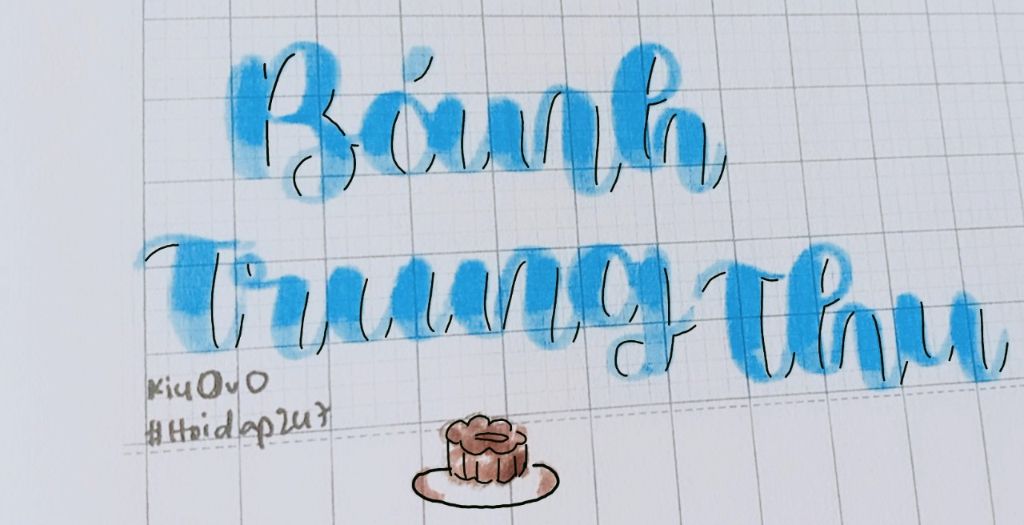 Bánh
Trung Thu
KiuOvO
#Hoidap247